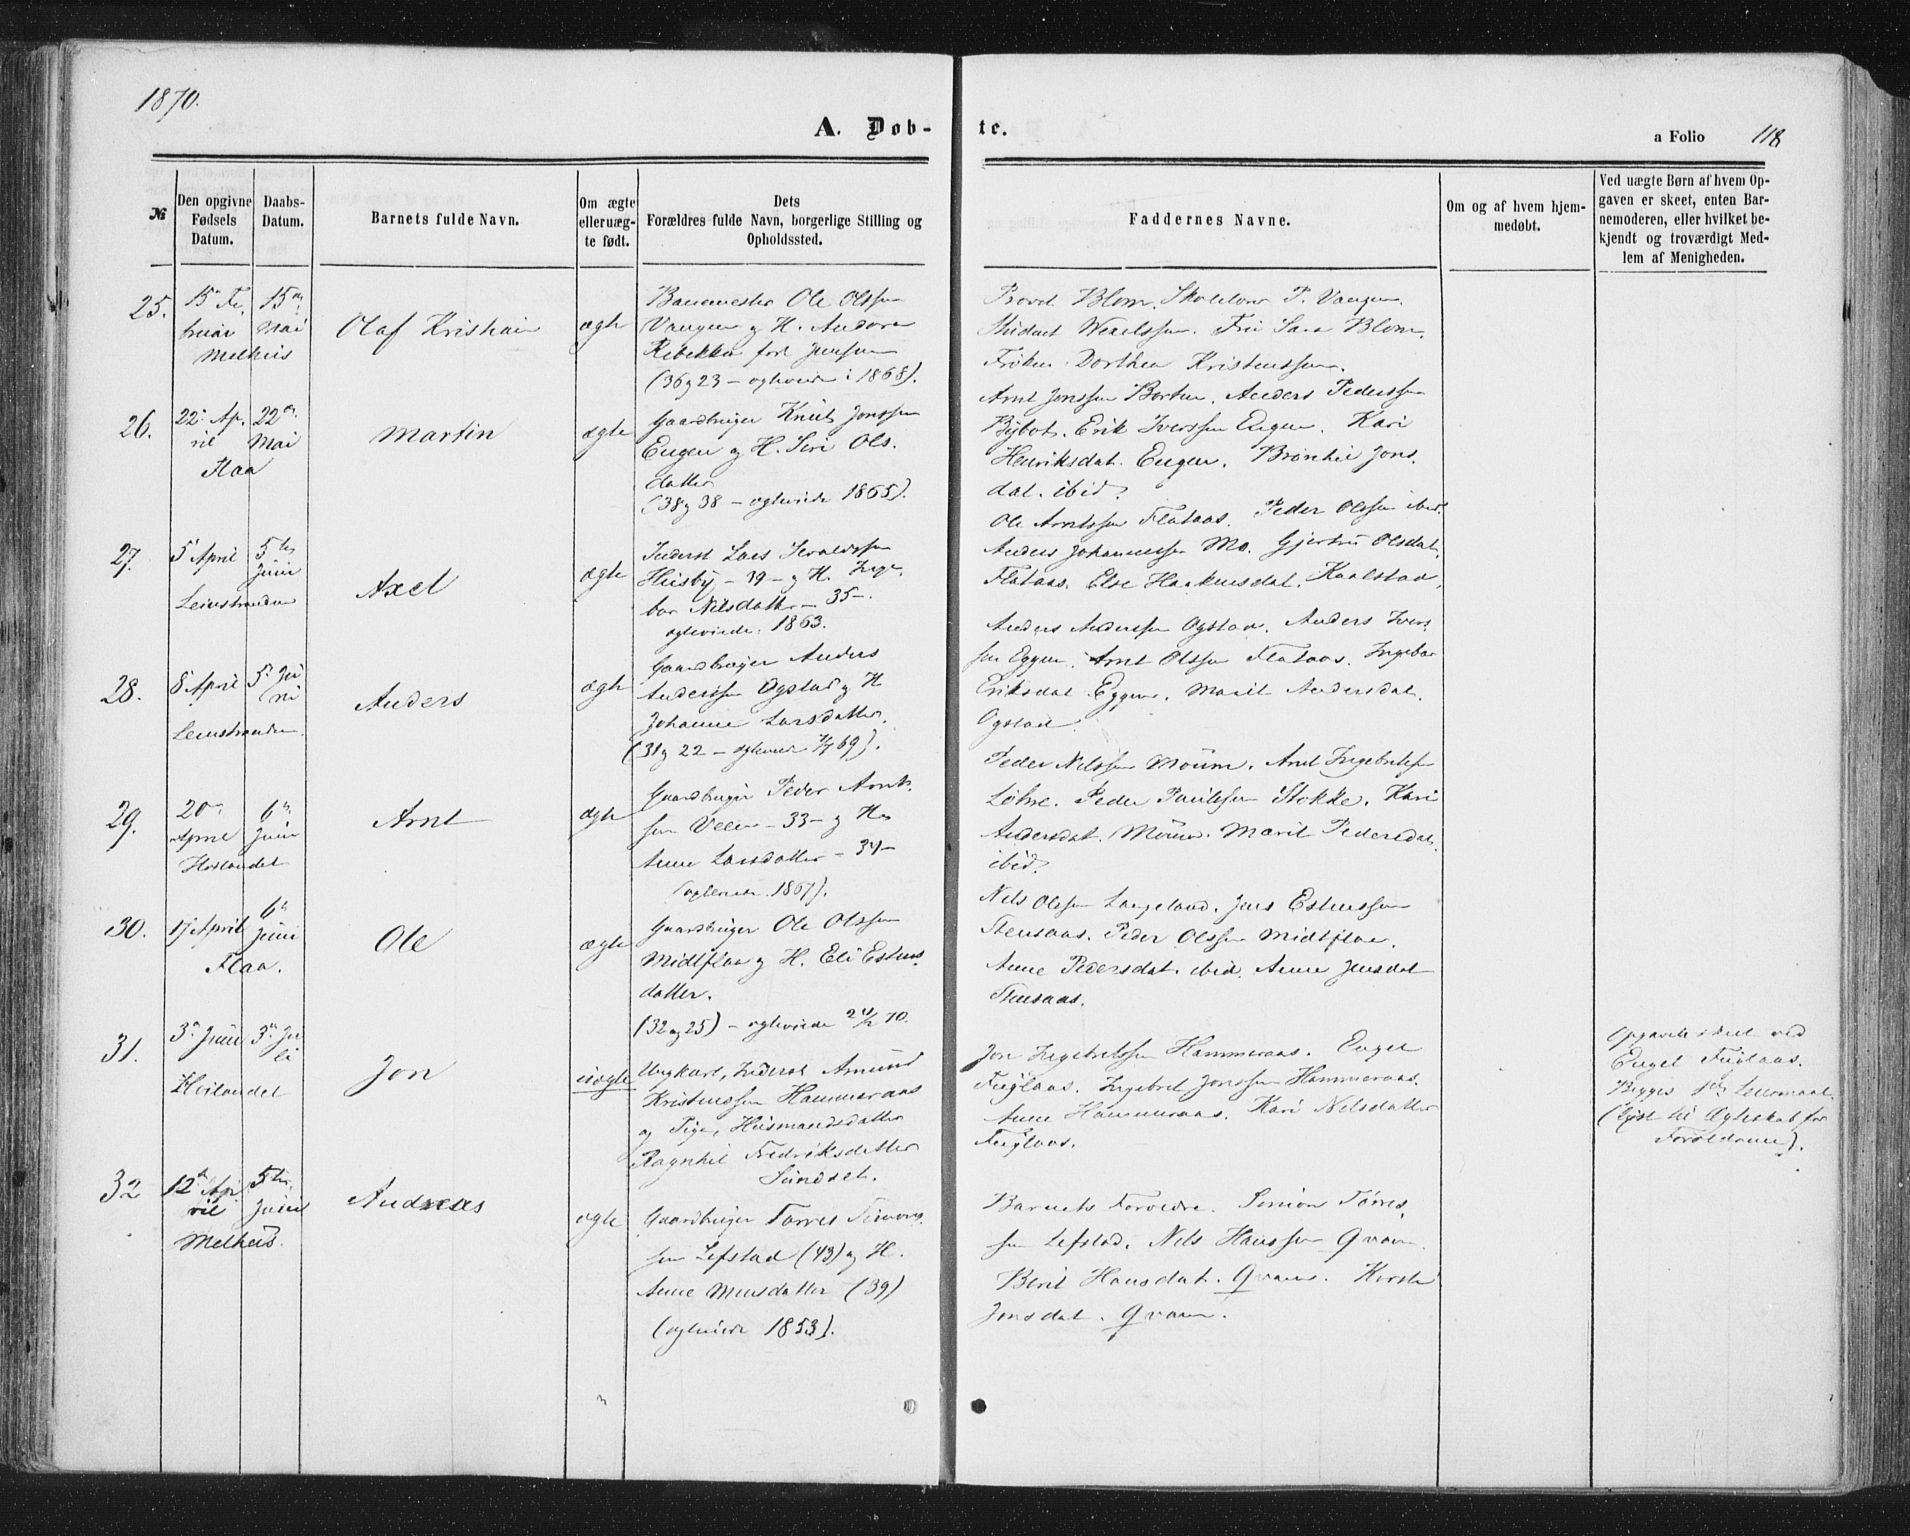 1870.
A. Døb-
te.
a Folio 118
№
Den opgivne Fødsels Datum.
Daabs-Datum.
Barnets fulde Navn.
Om ægte eller uæg-te født.
Dets
Forældres fulde Navn, borgerlige Stilling og Opholdssted.
Faddernes Navne.
Om og af hvem hjem-medøbt.
Ved uægte Børn af hvem Op-gaven er skeet, enten Bar-nemoderen, eller hvilket be-kjendt og troværdigt Med-lem af Menigheden.
25.
15 Fe
bruar
Melhus
15de
Mai
Olaf Kristian
ægte
Ole Olssen
Vangen og H.
Rebekka Jenssen
(36 og 23 – 1868).
Provst Blom. P. Vangen.
Student Wexelssen. Blom.
Frøken Dorthea Kristenssen.
26.
22 Ap.
ril
Flaa
22de
Mai
Martin
ægte
Gaardbruger Knut Jonssen
Engen og H. Siri Ols.
datter
(38 og 38 – 1865).
Arnt Jonssen Borten. Anders Pederssen
Erik Iverssen Engen. Kari
Henriksdat. Engen. Jons
dat. ibid.
27.
5 April
Leinstranden
5te
Juni
Axel
ægte
Inderst Lars
Husby – 39 – og H. Inge
bor Nilsdatter – 35 –
1863.
Ole Arntssen Flataas. Peder Olssen ibid.
Anders Johannessen Mo. Gjertru Olsdat.
Flataas. Else Haakensdat. Kaalstad
28.
8 April
Leinstranden
5 Ju
ni
Anders
ægte
Gaardbruger Anders
Anderssen Øgstad og H
Johanne Larsdatter.
(31 og 22 – 69).
Anders Anderssen Øgstad. Anders Ivers
sen Eggen. Arnt Olssen Flataas. Ingebor
Eriksdat. Eggen. Marit Andersdat.
Øgstad.
29.
20
April
Høilandet
6te
Juni
Arnt
ægte
Gaardbruger Peder Arnt.
sen – 33 – og H.
Anne Larsdatter – 34 –
1867).
Peder Nilssen Moum. Arnt Ingebretssen
Løhre. Peder Paulssen Stokke. Kari
Andersdat. Moum. Marit Pedersdat.
ibid.
30.
17 April
Flaa.
6te
Juni
Ole
ægte
Gaardbruger Ole Olssen
Midtflaa og H. Eli Estens
datter.
(32 og 25) – 70.
Nils Olssen Langeland. Jens Estenssen
Stensaas. Peder Olssen Midtflaa.
Anne Pedersdat. ibid. Anne Jensdat
Stensaas.
31.
3 Juni
Høilandet
3 Ju
li
Jon
uægte
Ungkarl, Inderst Amund
Kristenssen Hammeraas
og Pige, Husmandsdatter
Ragnhil Fredriksdatter
Sundset.
Jon Ingebretssen Hammeraas. Engel
Fuglaas. Ingebret Jonssen Hammeraas.
Anne Hammeraas. Kari Nilsdatter
Fuglaas.
Opgavet ved
Engel Fuglaas.
Begges Leiermaal.
(lyst til Ægteskab for
Forældrene).
32
12te Ap
ril
Melhus.
5te
Juni
Andreas
ægte
Gaardbruger Tørres Simons
sen Lefstad (43) og H.
Anne Monsdatter (39)
(1853).
Barnets Forældre. Simon Tørres
sen Lefstad. Nils Hanssen Qvam.
Berit Hansdat. Qvam.
Jonsdat. Qvam.